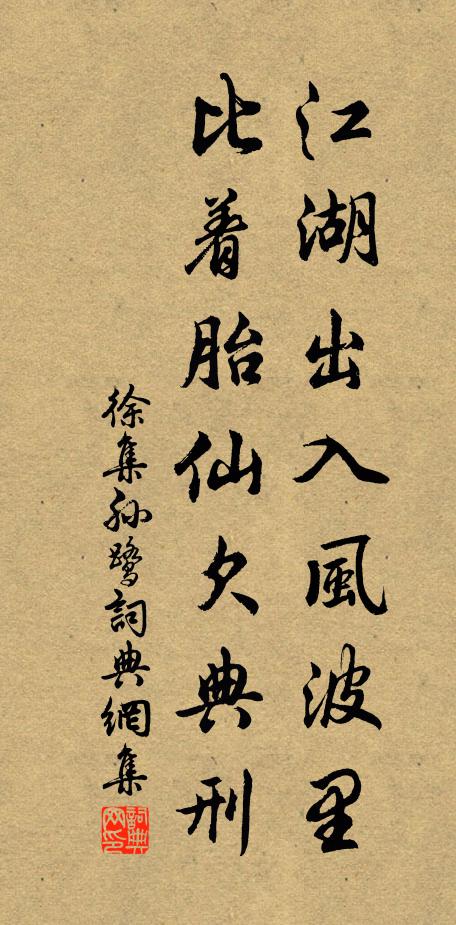 江湖出入風波里
比着胎仙欠典刑
徐集孙鹭詞典網集
詞典網印